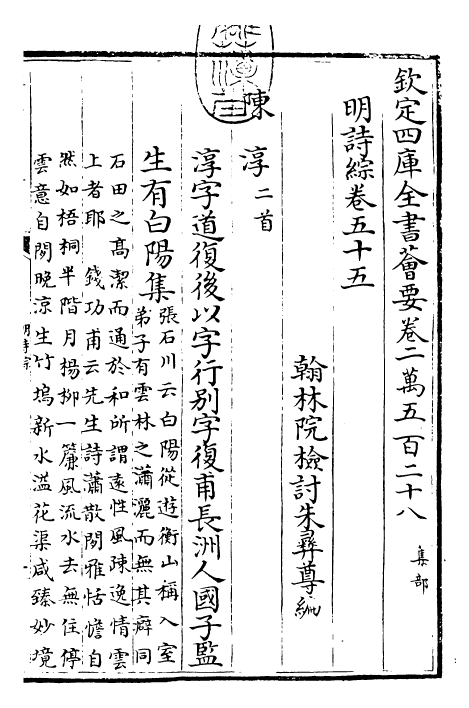 欽定四庫全書薈要卷二萬五百二十八 集部
明詩綜卷五十五
翰林院檢討朱彝尊編
陳淳二首
淳字道復後以字行别字復甫長洲人國子監
生有白陽集張石川云白陽從遊衡山稱入室
弟子有雲林之瀟灑而無其癖同
石田之髙潔而通於和所謂逺性風踈逸情雲
上者耶 錢功甫云先生詩瀟散閒雅恬憺自
然如梧桐半階月楊柳一簾風流水去無住停
雲意自閒晚凉生竹塢新水溢花渠咸臻妙境
明詩綜